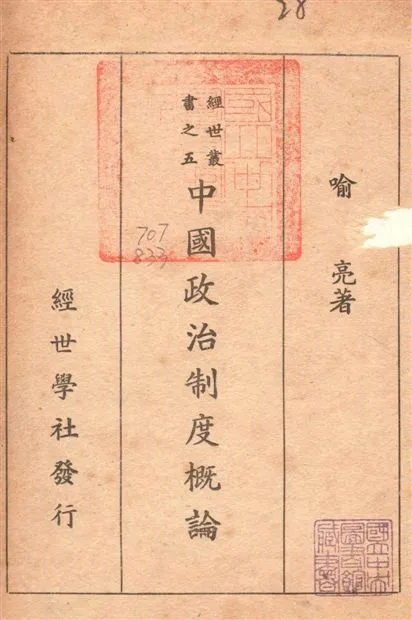 28
喻 亮著
經世叢
書之五
中國政治制度概論
707
經世學社發行